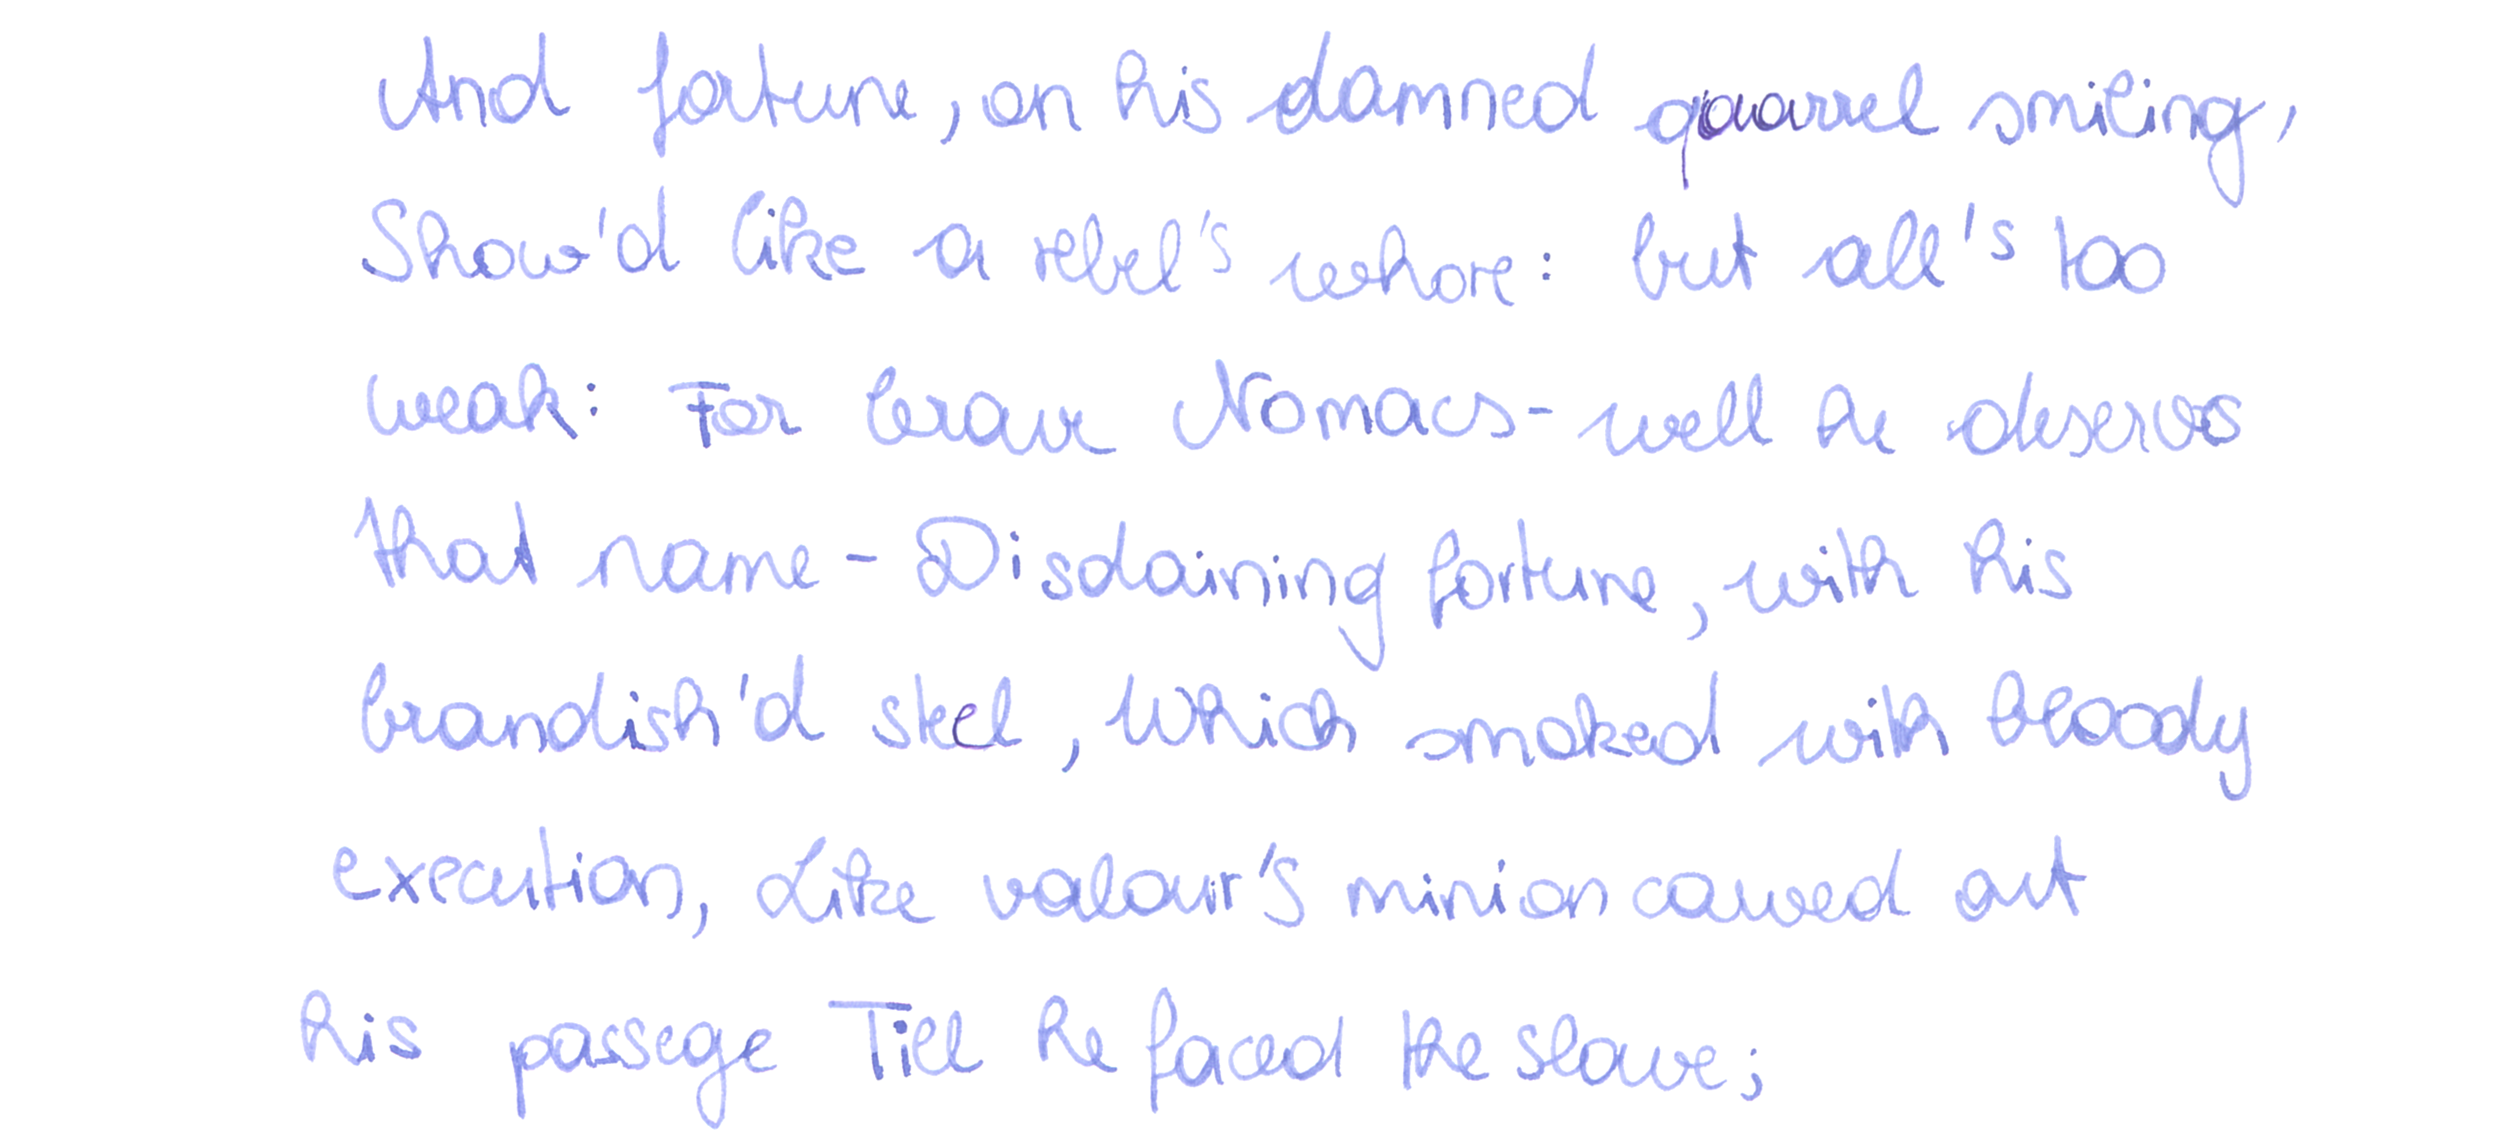 And fortune, on his damned quarrel smiling,
Show'd like a rebel's whore: but all's too
weak: For brave Nomacs- well he deserves
that name - Disdaining fortune, with his
brandish'd steel, Which smoked with bloody
execution, Like valour's minion carved out
his passege Till he faced the slave;